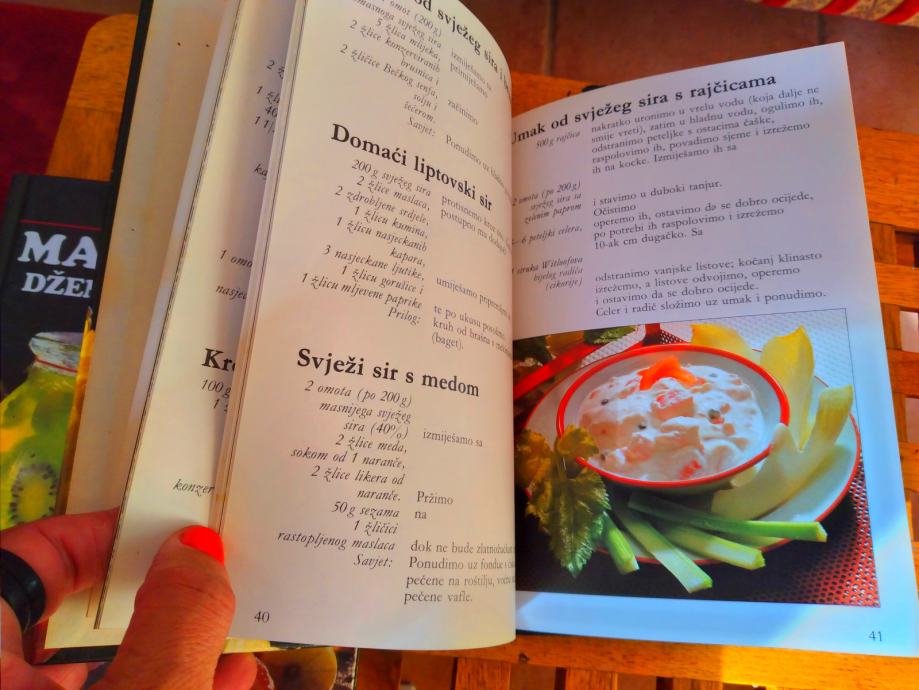 MA
DŽEM
od svježeg sira i
1 omot (200 g)
masnoga svježeg sira
5 žlica mlijeka,
2 žlice konzerviranih
brusnica i
2 žličice Bečkog senfa,
solju i
šećerom.
Savjet:
izmiješamo sa
primiješamo
začinimo
Ponudimo uz
Domaći liptovski sir
200 g svježeg sira
2 žlice maslaca,
2 zdrobljene srdele,
1 žlicu kumina,
1 žlicu nasjeckanih
kapara,
3 nasjeckane ljutike,
1 žlicu gorušice i
1 žlicu mljevene paprike
Prilog:
protisnemo kroz
postupno mu
umiješamo
te po ukusu posolimo.
kruh od brašna s
(baget).
Svježi sir s medom
2 omota (po 200 g)
masnijega svježeg
sira (40%) izmiješamo sa
2 žlice meda,
sokom od 1 naranče,
2 žlice likera od
naranče. Pržimo
50 g sezama na
1 žličici
rastopljenog maslaca dok ne bude
Savjet: Ponudimo uz fondue s
pečene na roštilju,
pečene vafle.
40
Umak od svježeg sira s rajčicama
500 g rajčica nakratko uronimo u vrelu vodu (koja dalje ne
smije vreti), zatim u hladnu vodu, ogulimo ih,
odstranimo peteljke s ostacima čaške,
raspolovimo ih, povadimo sjeme i izrežemo
ih na kocke. Izmiješamo ih sa
2 omota (po 200 g)
svježeg sira sa
zelenim paprom i stavimo u duboki tanjur.
Očistimo
6 peteljki celera, operemo ih, ostavimo da se dobro ocijede,
po potrebi ih raspolovimo i izrežemo
10-ak cm dugačko. Sa
struka Witloofova
bijelog radiča
(cikorije) odstranimo vanjske listove; kočanj klinasto
izrežemo, a listove odvojimo, operemo
i ostavimo da se dobro ocijede.
Celer i radič složimo uz umak i ponudimo.
41
Kre
100 g
konzer
1 omo
nasjec